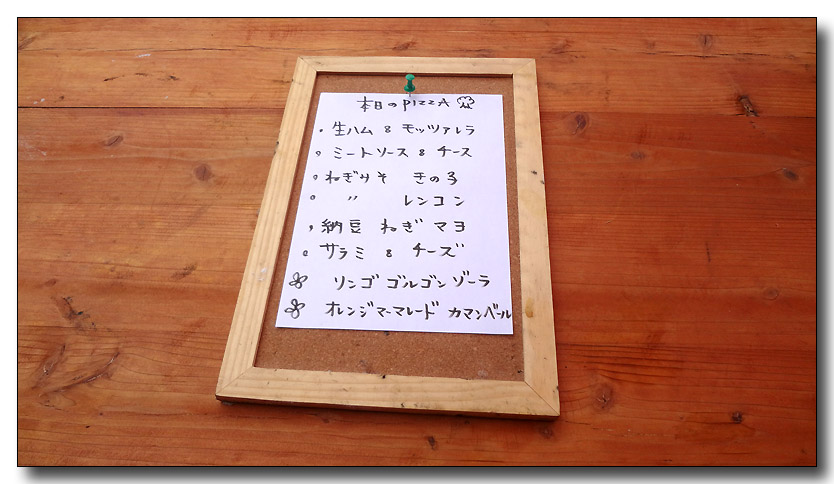 本日のPIZZA
・生ハム & モッツァレラ
・ミートソース & チース
・ねぎみそ きの子
・ 〃 レンコン
・納豆 ねぎ マヨ
・サラミ & チーズ
リンゴ ゴルゴンゾーラ
オレンジマーマレード カマンベール